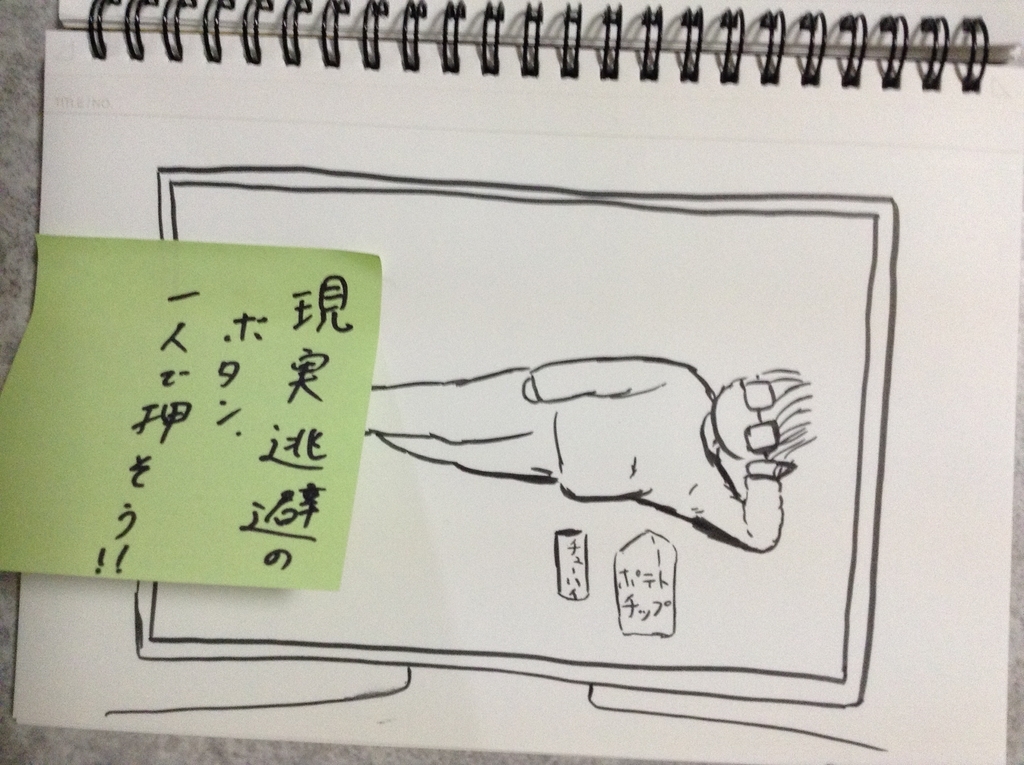 TITLE/NO.
現実逃避の
ボタン.
一人で押そう!!
チューハイ
ポテト
チップ